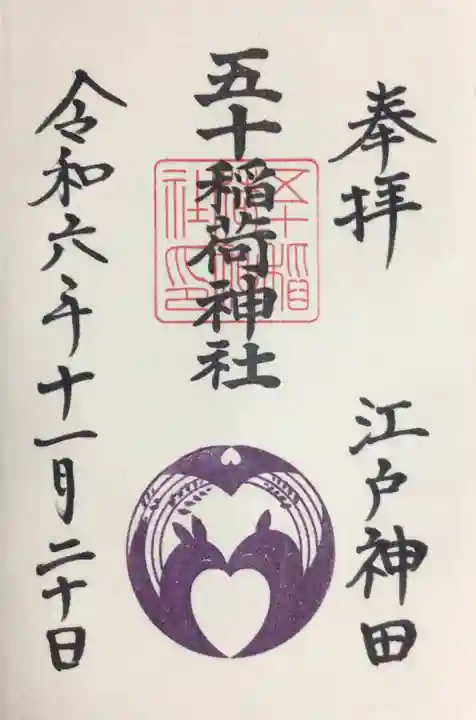 奉拝
江戸神田
五十稲荷神社
令和六年十一月二十日